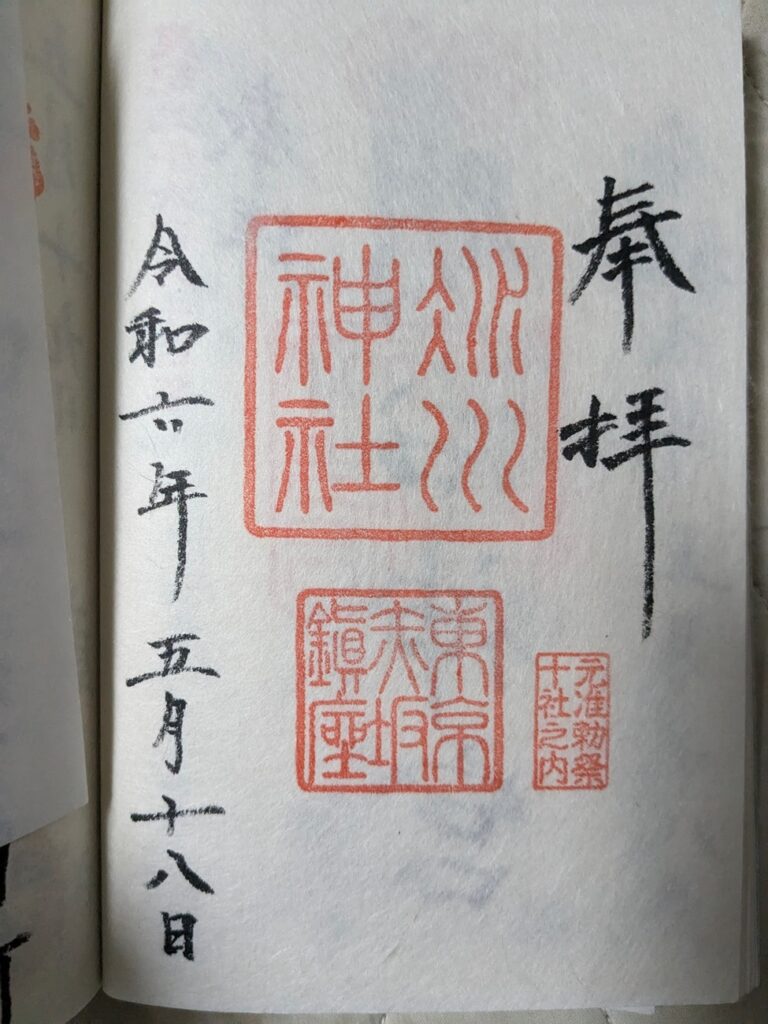 奉拝
氷川
神社
東京
赤坂
鎮座
元准勅祭
十社之内
令和六年五月十八日